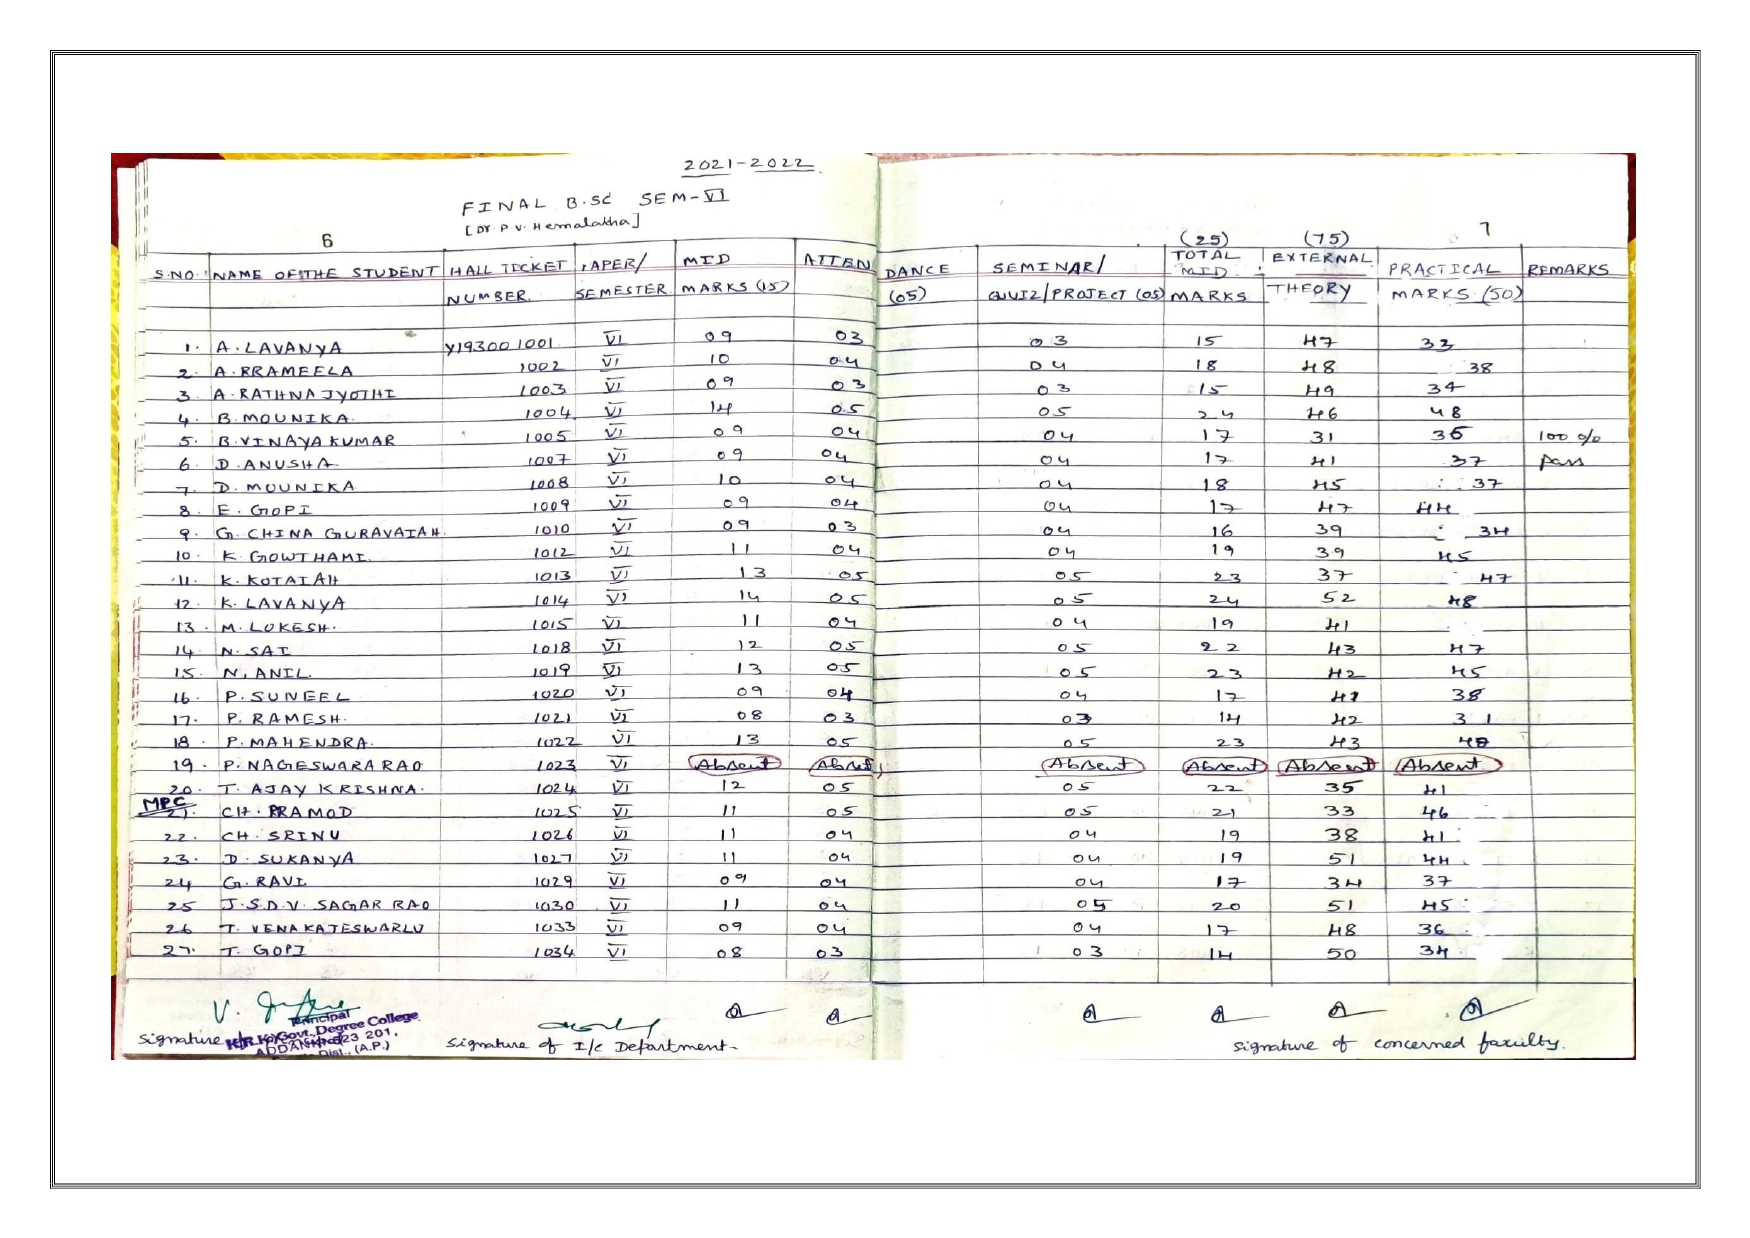 2021-2022
FINAL B.SC SEM-VI
[Dr. P.V. Hemalatha]
6 (25) (75) 7
S.NO. NAME OF THE STUDENT HALL TICKET NUMBER. PAPER/ SEMESTER MID MARKS (15) ATTEN DANCE (05) SEMINAR/ QUIZ/PROJECT (05) TOTAL MID MARKS EXTERNAL THEORY PRACTICAL MARKS (50) REMARKS
1. A. LAVANYA Y193001001 VI 09 03 03 15 47 33
2. A. PRAMEELA 1002 VI 10 04 04 18 48 38
3. A. RATHNA JYOTHI 1003 VI 09 03 03 15 49 34
4. B. MOUNIKA. 1004 VI 14 05 05 24 46 48
5. B. VINAYA KUMAR 1005 VI 09 04 04 17 31 36 100 %
6. D. ANUSHA. 1007 VI 09 04 04 17 41 37 pass
7. D. MOUNIKA 1008 VI 10 04 04 18 45 37
8. E. GOPI 1009 VI 09 04 04 17 47 44
9. G. CHINA GURAVAIAH. 1010 VI 09 03 04 16 39 34
10. K. GOWTHAMI. 1012 VI 11 04 04 19 39 45
11. K. KOTAIAH 1013 VI 13 05 05 23 37 47
12. K. LAVANYA 1014 VI 14 05 05 24 52 48
13. M. LOKESH. 1015 VI 11 04 04 19 41
14. N. SAI 1018 VI 12 05 05 22 43 47
15. N. ANIL. 1019 VI 13 05 05 23 42 45
16. P. SUNEEL 1020 VI 09 04 04 17 41 38
17. P. RAMESH. 1021 VI 08 03 03 14 42 31
18. P. MAHENDRA. 1022 VI 13 05 05 23 43
19. P. NAGESWARA RAO 1023 VI Absent Absent Absent Absent Absent Absent
20. T. AJAY KRISHNA. 1024 VI 12 05 05 22 35 41
MPC
21. CH. PRAMOD 1025 VI 11 05 05 21 33 46
22. CH. SRINU 1026 VI 11 04 04 19 38 41
23. D. SUKANYA 1027 VI 11 04 04 19 51 44
24 G. RAVI 1029 VI 09 04 04 17 34 37
25 J.S.D.V. SAGAR RAO 1030 VI 11 04 05 20 51 45
26 T. VENAKATESWARLU 1033 VI 09 04 04 17 48 36
27. T. GOPI 1034 VI 08 03 03 14 50 34
Principal
Govt. Degree College
523 201.
Dist., (A.P.)
Signature Signature of I/c Department. Signature of concerned faculty.